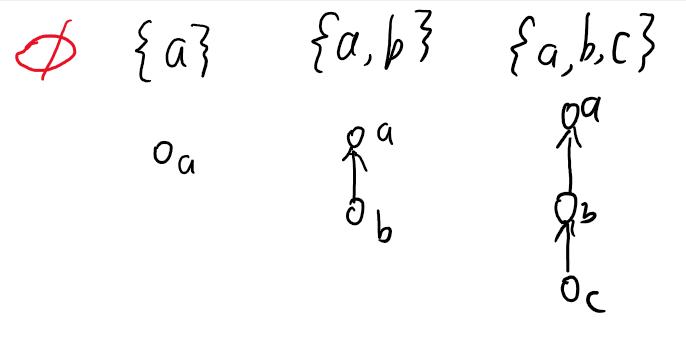 ∅ {a} {a,b} {a,b,c}
a a a
b b
c